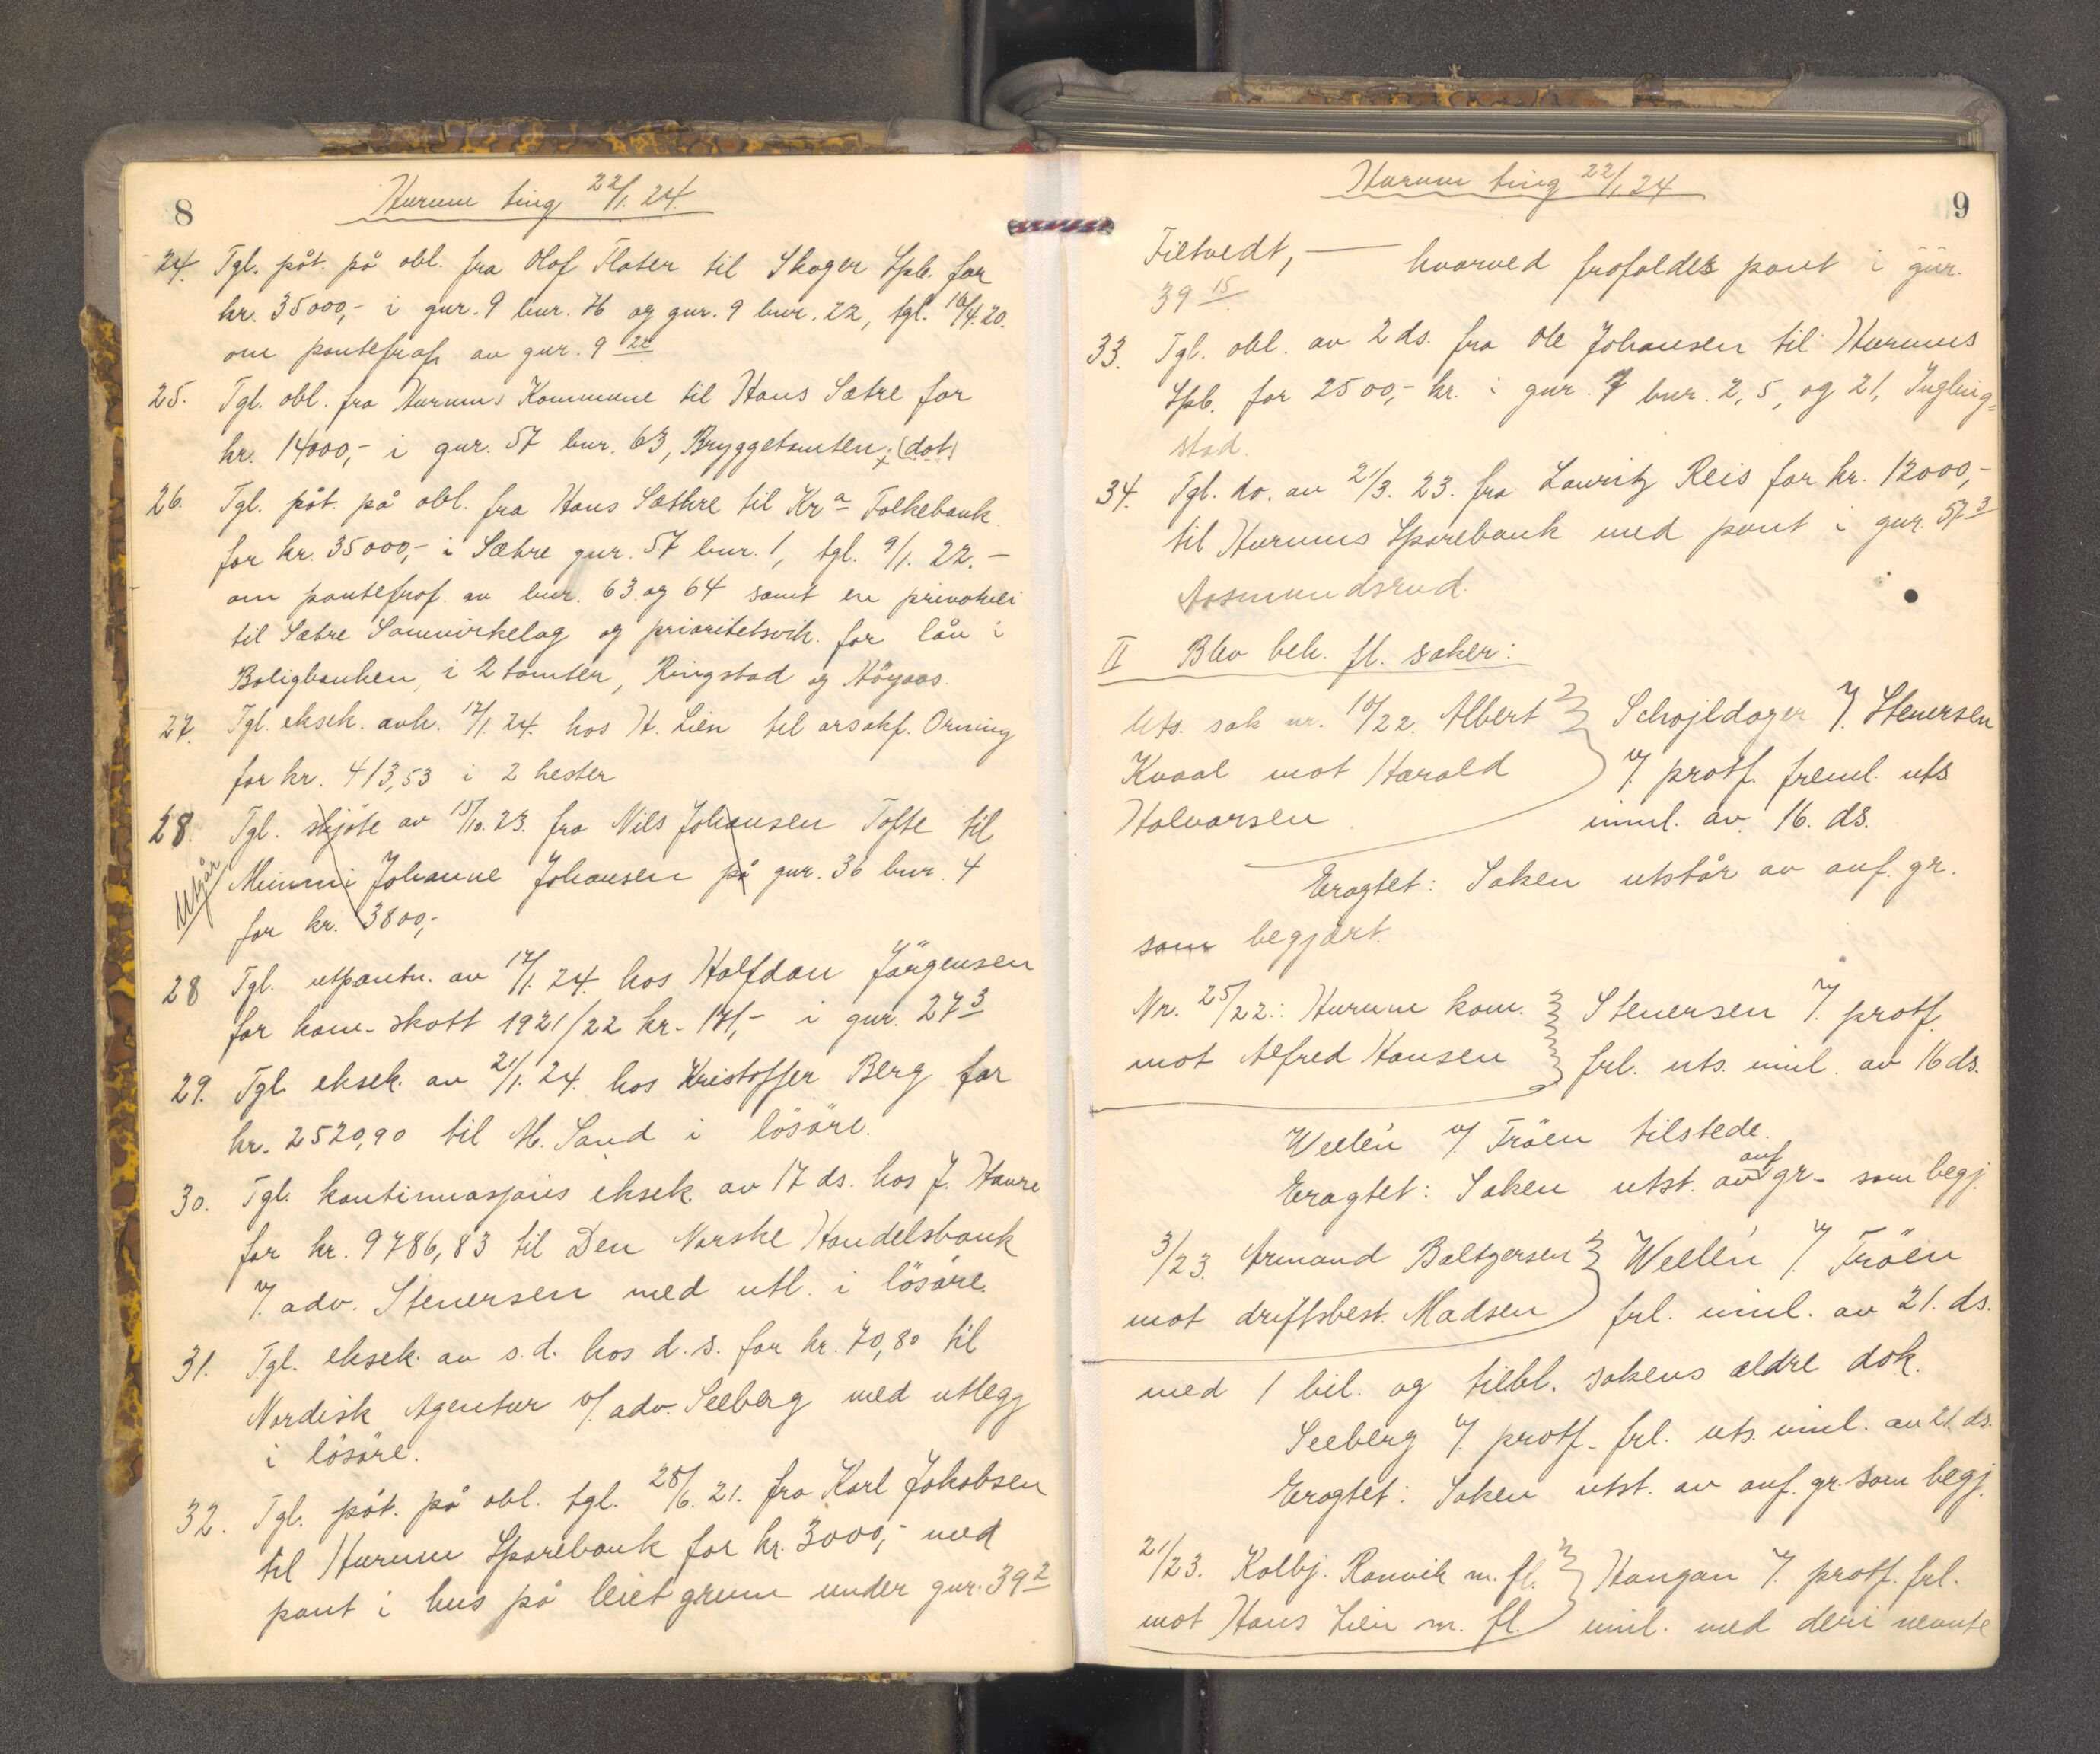 8
Hurum ting 22/1. 24.
24. Tgl. påt. på obl. fra Olof Flater til Skoger Spb. for
kr. 35000,- i gnr. 9 bnr. 16 og gnr. 9 bnr. 22, tgl. 16/4. 20.
om pantefraf. av gnr. 9 22
25. Tgl. obl. fra Hurums Kommune til Hans Sætre for
kr. 14000,- i gnr. 57 bnr. 63, Bryggetomten, (dot)
26. Tgl. påt. på obl. fra Hans Sæthre til Kra Folkebank
for kr. 35000,- i Sætre gnr. 57 bnr. 1, tgl. 9/1. 22. -
om pantefraf. av bnr. 63 og 64 samt en privatvei
til Sætre Samvirkelag og prioritetsvik. for lån i
Boligbanken, i 2 tomter, Ringstad og Höyaas.
27. Tgl. eksek. avh. 17/1. 24. hos H. Lien til orsakf. Orning
for kr. 413,53 i 2 hester
28. Tgl. skjöte av 15/10. 23. fra Nils Johansen Tofte til
Utgår Mimmi Johanne Johansen på gnr. 36 bnr. 4
for kr. 3800,-
28 Tgl. utpantn. av 17/1. 24. hos Halfdan Jörgensen
for kom. skatt 1921/22 kr. 171,- i gnr. 27 3
29. Tgl. eksek. av 21/1. 24. hos Kristoffer Berg for
kr. 2520,90 til M. Sand i lösöre.
30. Tgl. kontinuasjons eksek. av 17 ds. hos J. Haure
for kr. 9786,83 til Den Norske Handelsbank
v/. adv. Stenersen med utl. i lösöre.
31. Tgl. eksek. av s.d. hos d.s. for kr. 70,80 til
Nordisk Agentur v/. adv. Seeberg med utlegg
i lösöre.
32. Tgl. påt. på obl. tgl. 28/6. 21. fra Karl Jakobsen
til Hurum Sparebank for kr. 3000,- med
pant i hus på leiet grunn under gnr. 39 2
Hurum ting 22/1. 24
9
Filtvedt, — hvorved frafaldes pant i gnr.
39 15
33. Tgl. obl. av 2 ds. fra Ole Johansen til Hurums
Spb. for 2500,- kr. i gnr. 7 bnr. 2, 5, og 21, Yngling-
stad.
34. Tgl. do. av 21/3. 23. fra Lauritz Reis for kr. 12000,-
til Hurums Sparebank med pant i gnr. 57 3
Aasmundsrud.
II Blev beh. fl. saker:
Uts. sak nr. 10/22. Albert Schøjldager v/. Stenersen
Kvaal mot Harald v/. protf. freml. uts
Halvorsen innl. av 16. ds.
Eragtet: Saken utstår av anf. gr.
som begjärt.
Nr. 25/22.: Hurum kom. Stenersen v/. protf.
mot Alfred Hansen frl. uts. innl. av 16 ds.
Wellén v/. Fröen tilstede.
Eragtet: Saken utst. av anf gr. som begj.
3/23. Armand Baltzersen Wellén v/. Fröen
mot driftsbest. Madsen frl. innl. av 21. ds.
med 1 bil. og tilbl. sakens ældre dok.
Seeberg v/. protf. frl. uts. innl. av 21. ds.
Eragtet: Saken utst. av anf. gr. som begj.
21/23. Kolbj. Ranvik m. fl. Haugan v/. protf. frl.
mot Hans Lien m. fl. innl. med deri nevnte